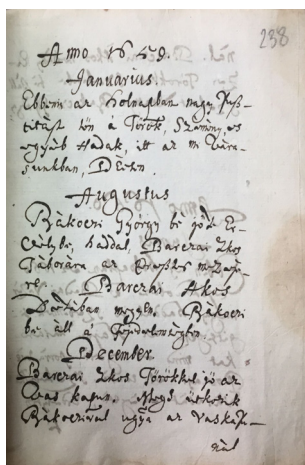 238
Anno 1659.
Januarius.
Ebben az holnapban nagy Pusz-
titást tön à Török, és
egyéb Hadak, itt az mi Váro-
sunkban, Déván.
Augustus
Rákoczi György bé jött Er-
délybe, haddal, Barczai Akos
Táborára az mezeje-
re. Barczai Akos
Dévában megyen. Rákoczi
be áll à Fejedelemségben.
December.
Barczai Akos Törökkel jö az
Vas kapun. Megh ütközik
Rákoczival ugyan az Vaskapu-
nál